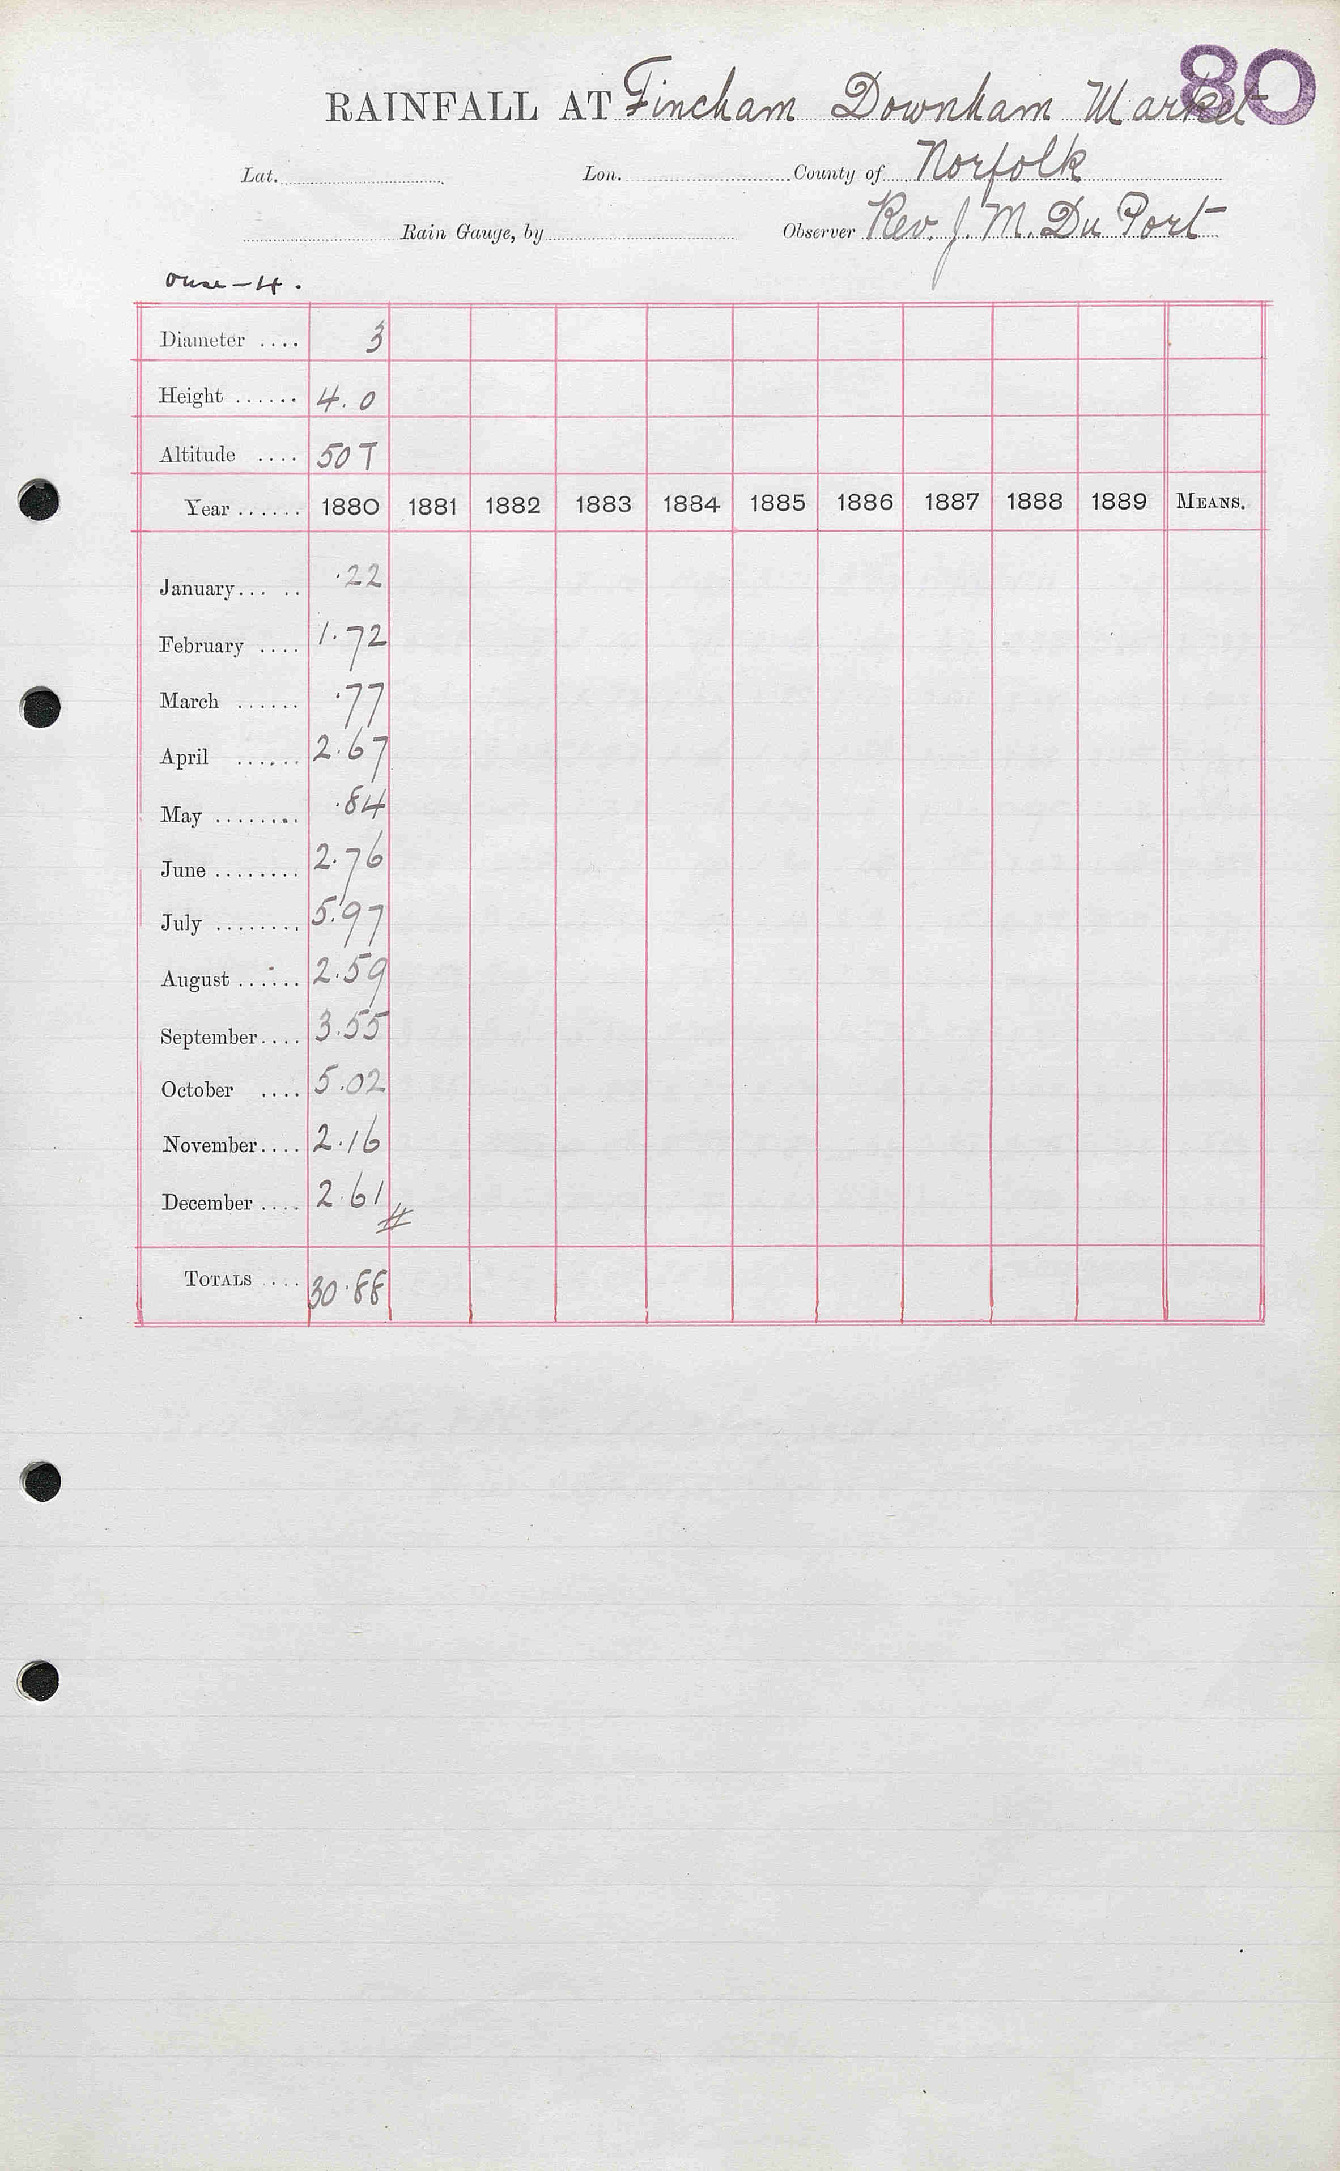 80
RAINFALL AT Fincham Downham Market
Lat. Lon. County of Norfolk
Rain Gauge, by Observer Rev. J. M. Du Port
Ouse - 4.
Diameter .... 3
Height ...... 4.0
Altitude .... 50 T
Year ...... 1880 1881 1882 1883 1884 1885 1886 1887 1888 1889 MEANS.
January ... .. ·22
February .... 1·72
March ...... ·77
April ...... 2·67
May ........ ·84
June ........ 2·76
July ........ 5·97
August ...... 2·59
September.... 3·55
October .... 5·02
November.... 2·16
December .... 2·61
TOTALS .... 30·88